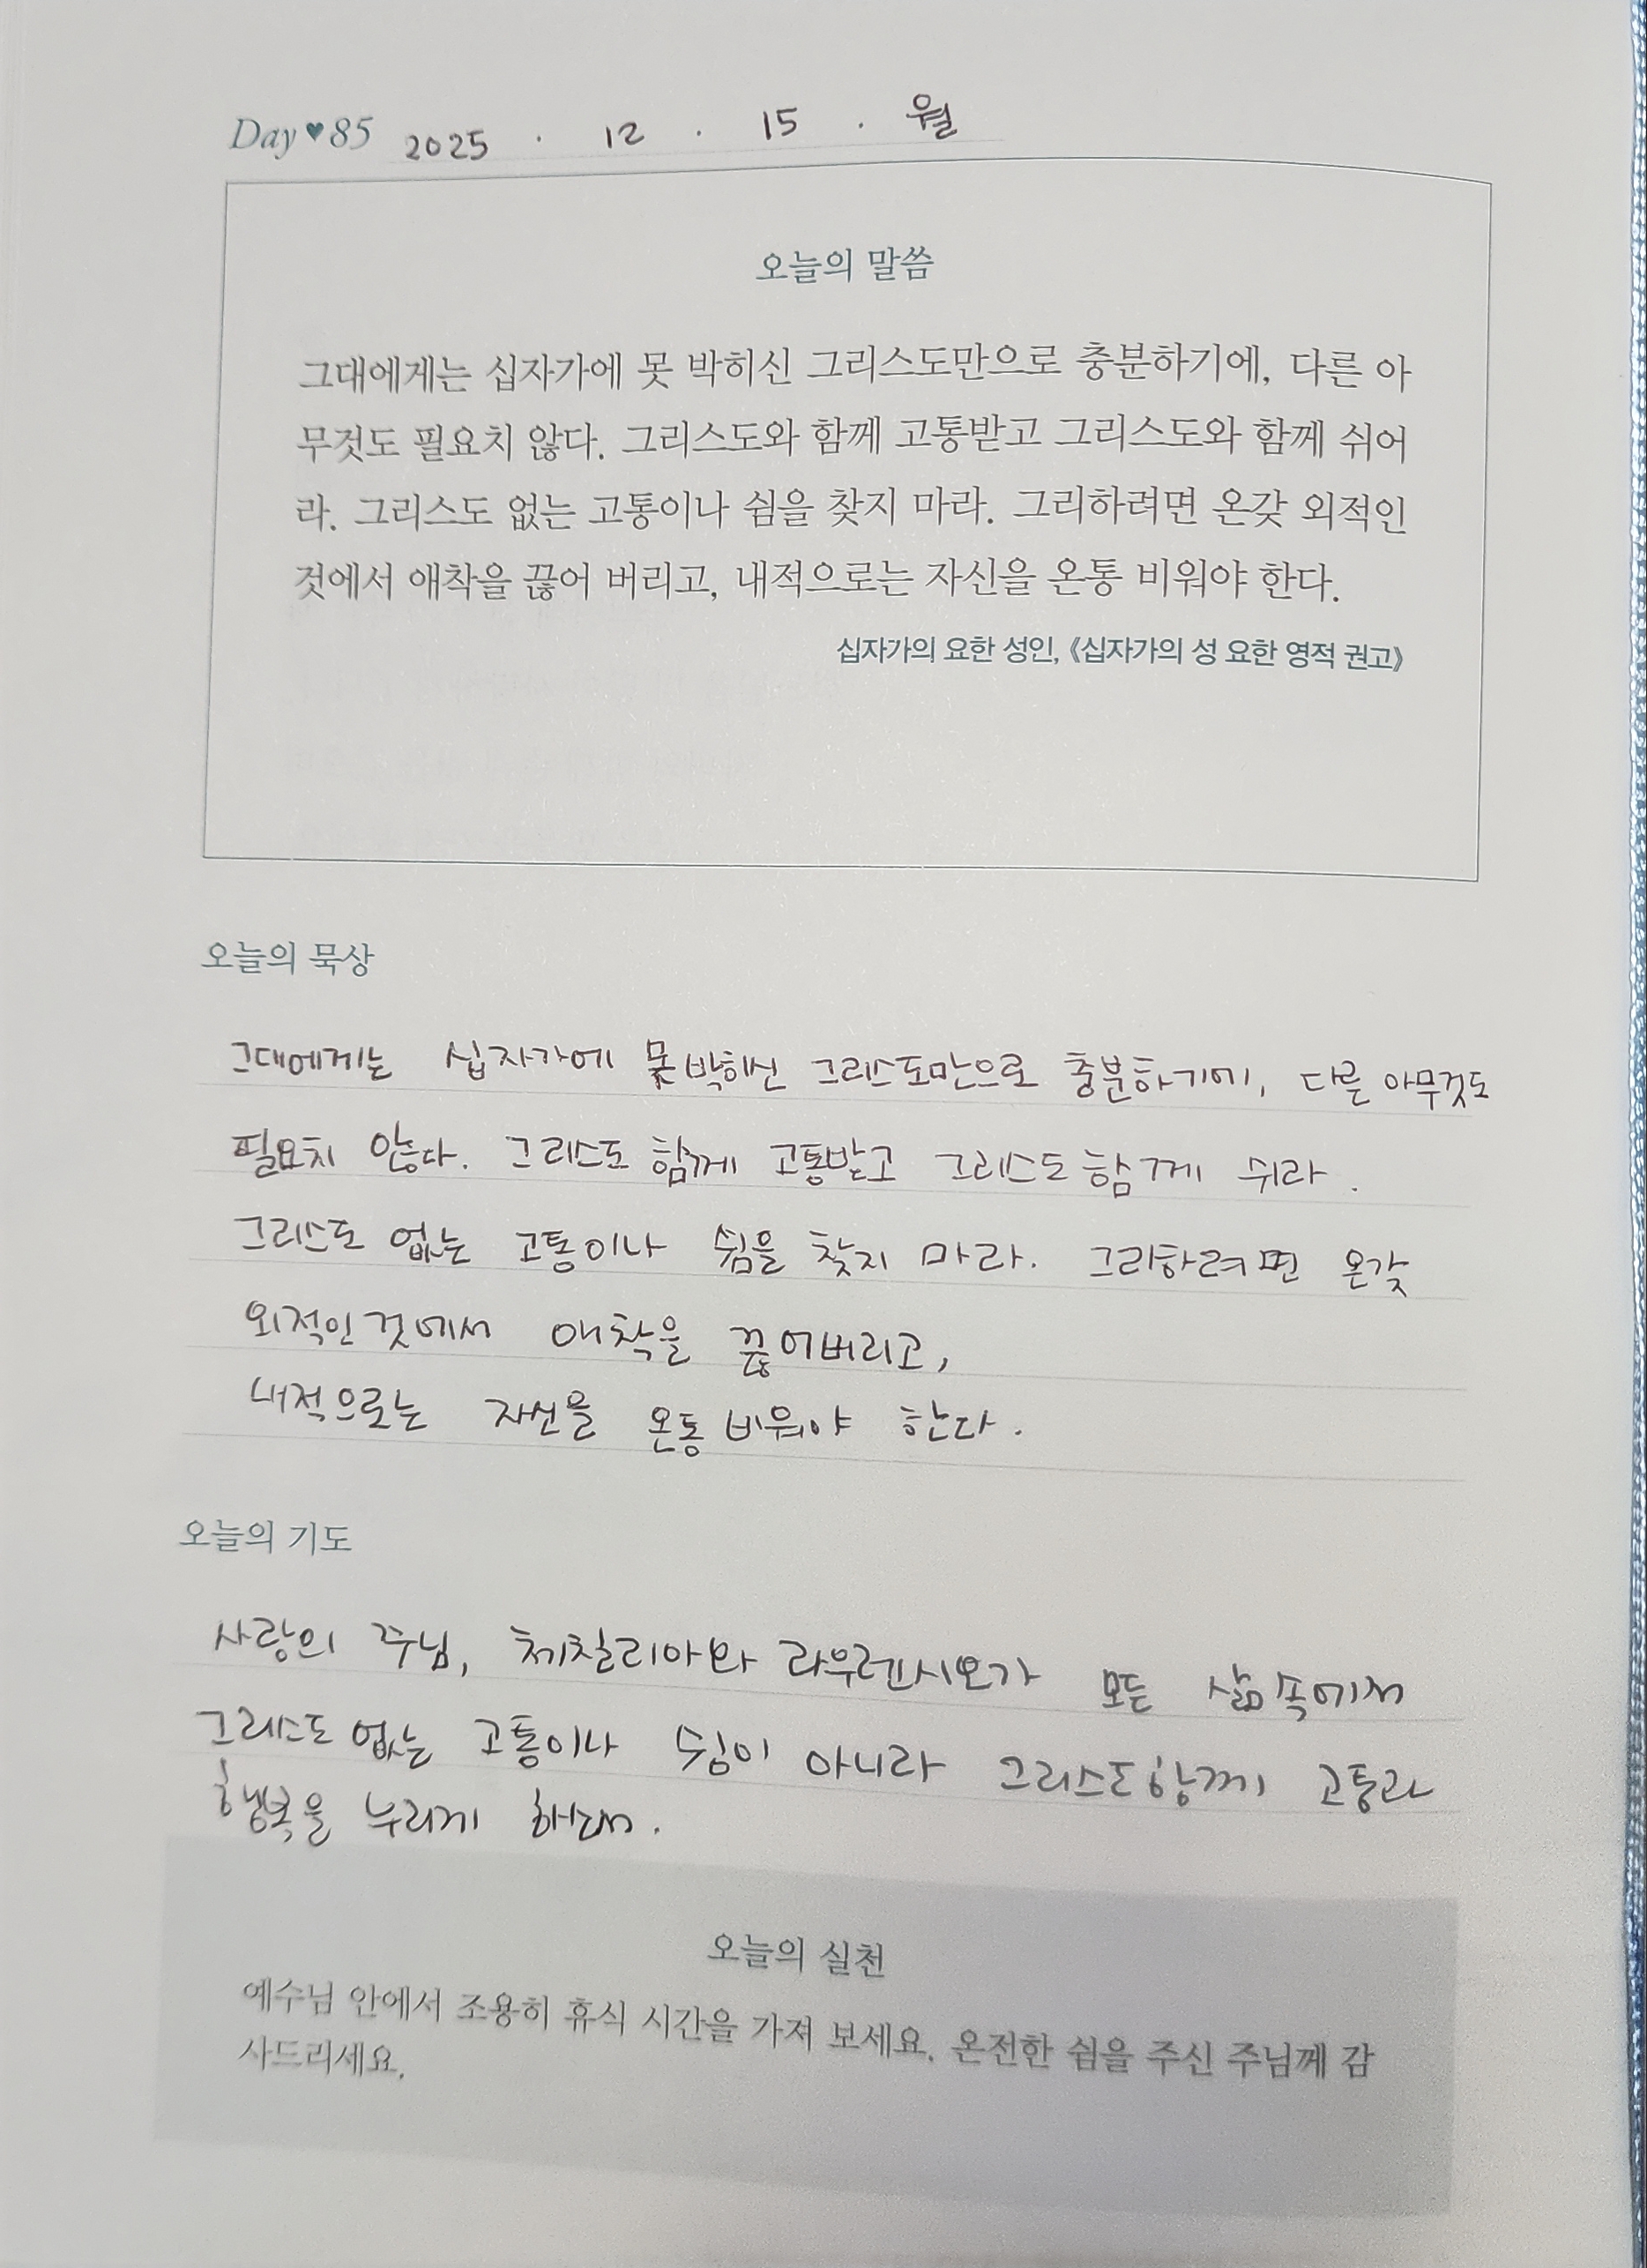 Day ♥ 85 2025 . 12 . 15 . 월
오늘의 말씀
그대에게는 십자가에 못 박히신 그리스도만으로 충분하기에, 다른 아
무것도 필요치 않다. 그리스도와 함께 고통받고 그리스도와 함께 쉬어
라. 그리스도 없는 고통이나 쉼을 찾지 마라. 그리하려면 온갖 외적인
것에서 애착을 끊어 버리고, 내적으로는 자신을 온통 비워야 한다.
십자가의 요한 성인, 《십자가의 성 요한 영적 권고》
오늘의 묵상
그대에게는 십자가에 못박히신 그리스도만으로 충분하기에, 다른 아무것도
필요치 않다. 그리스도 함께 고통받고 그리스도 함께 쉬라.
그리스도 없는 고통이나 쉼을 찾지 마라. 그리하려면 온갖
외적인 것에서 애착을 끊어버리고,
내적으로는 자신을 온통 비워야 한다.
오늘의 기도
사랑의 주님, 체칠리아와 라우렌시오가 모든 삶속에서
그리스도 없는 고통이나 쉼이 아니라 그리스도 함께 고통과
행복을 누리게 하소서.
오늘의 실천
예수님 안에서 조용히 휴식 시간을 가져 보세요. 온전한 쉼을 주신 주님께 감
사드리세요.